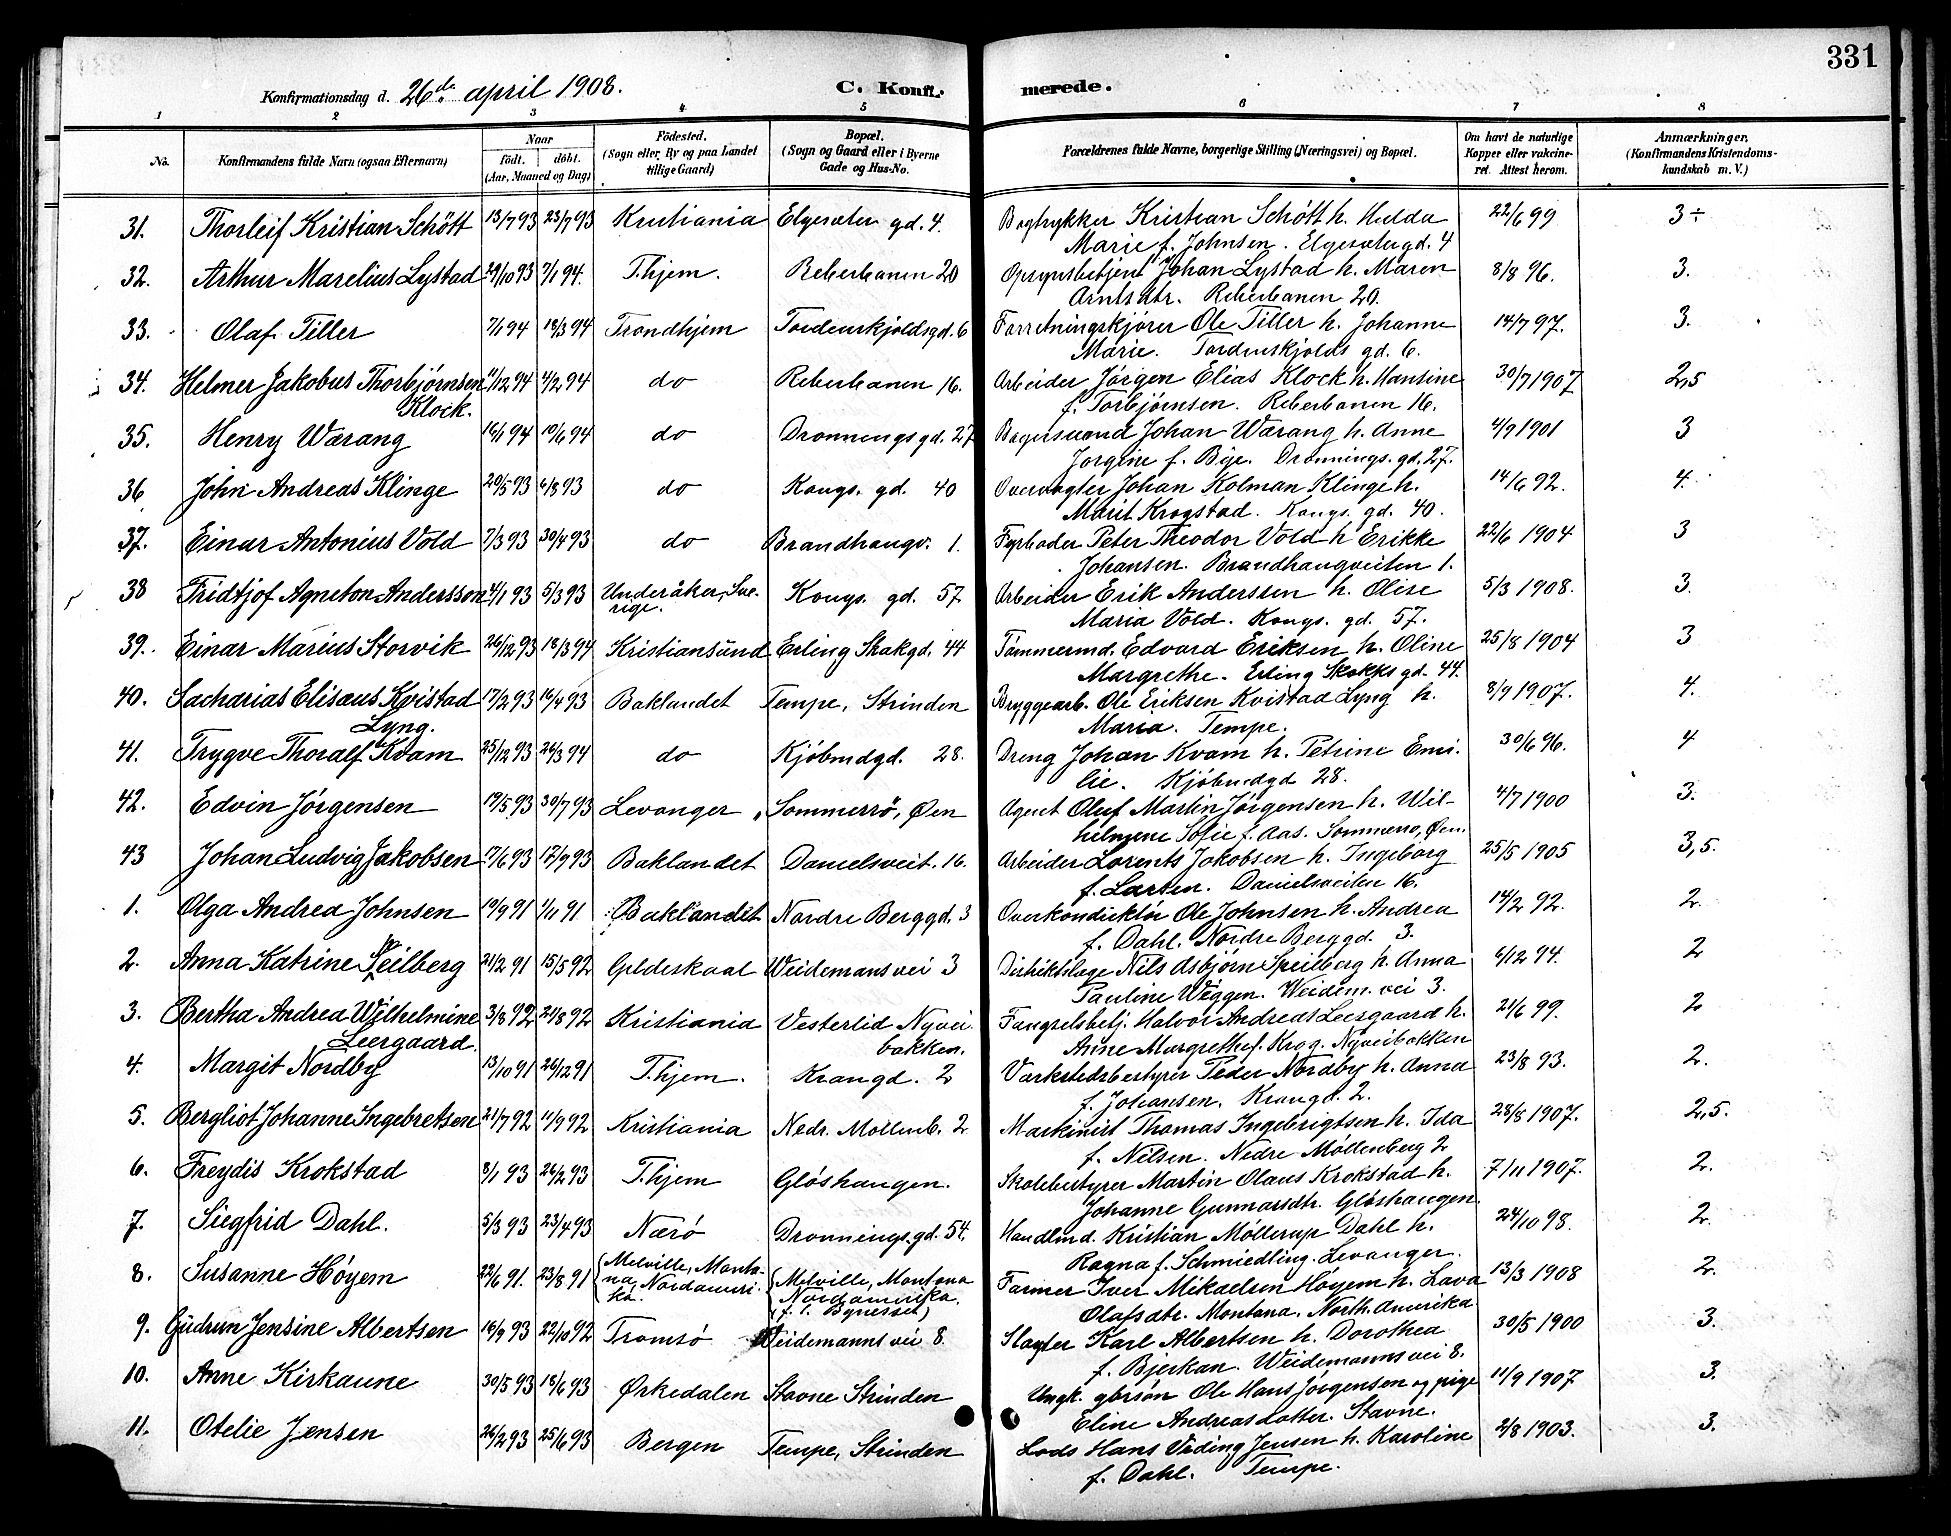 331
Konfirmationsdag d. 26de april 1908.
C. Konfirmerede.
1 2 3 4 5 6 7 8
No. Konfirmandens fulde Navn (ogsaa Efternavn) Naar født. døbt. (Aar, Maaned og Dag) Fødested. (Sogn eller By og paa Landet tillige Gaard) Bopæl. (Sogn og Gaard eller i Byerne Gade og Hus-No. Forældrenes fulde Navne, borgerlige Stilling (Næringsvei) og Bopæl. Om havt de naturlige Kopper eller vakcineret. Attest herom. Anmærkninger, (Konfirmandens Kristendomskundskab m. V.)
31. Thorleif Kristian Schött 13/7 93 23/7 93 Kristiania Elgesæter gd. 4. Bogtrykker Kristian Schött h. Hulda 22/6 99 3÷
Marie f. Johnsen. Elgesætergd. 4
32. Arthur Marelius Lystad 29/10 93 7/1 94. T.hjem. Reberbanen 20 Opsynsbetjent Johan Lystad h. Maren 8/8 96. 3.
Arntsdtr. Reberbanen 20.
33. Olaf Tiller 7/1 94 18/3 94 Trondhjem Tordenskjoldsgd. 6 Forretningskjörer Ole Tiller h. Johanne 14/7 97. 3.
Marie. Tordenskjolds gd. 6.
34. Helmer Jakobus Thorbjørnsen 11/12 94 4/2 94 do Reberbanen 16. Arbeider Jørgen Elias Klock h. Hansine 30/7 1907 2,5
Klock. f. Torbjørnsen. Reberbanen 16.
35. Henry Warang 16/1 94 10/6 94 do Dronningsgd. 27 Bagersvend Johan Warang h. Anne 4/9 1901 3
Jorgine f. Bye. Dronnings. gd. 27.
36 John Andreas Klinge 20/5 93 6/8 93 do Kongs. gd. 40 Overvogter Johan Kolman Klinge h. 14/6 92. 4.
Marit Krogstad. Kongs. gd. 40.
37. Einar Antonius Vold 7/3 93 30/4 93 do Brandhaugv. 1. Fyrbøder Peter Theodor Vold h Erikke 22/6 1904 3
Johansen. Brandhaugveiten 1.
38 Fridtjof Agneton Andersson 4/1 93 5/3 93 Underåker, Sverige. Kongs. gd. 57 Arbeider Erik Anderssen h. Olise 5/3 1908. 3.
Maria Vold. Kongs. gd. 57.
39. Einar Marius Storvik 26/12 93 18/3 94 Kristiansund Erling Skakgd. 44 Tømmermd. Edvard Eriksen h. Oline 25/8 1904 3
Margrethe. Erling Skakks gd. 44.
40. Sacharias Elisæus Kvistad 17/2 93 16/4 93 Baklandet Tempe, Strinden Bryggearb. Ole Eriksen Kvistad Lyng h. 8/9 1907. 4.
Lyng. Maria. Tempe.
41. Trygve Thoralf Kvam 25/12 93 26/3 94 do Kjöbmdgd. 28. Dreng Johan Kvam h. Petrine Emi- 30/6 96. 4
lie. Kjöbmdgd 28.
42. Edvin Jørgensen 19/5 93 30/7 93 Levanger Sommerrö, Øen Agent Oluf Martin Jørgensen h. Wil- 4/7 1900 3.
helmine Sofie f. Aas. Sommerro, Øen.
43 Johan Ludvig Jakobsen 17/6 93 17/9 93 Baklandet Danielsveit. 16. Arbeider Lorents Jakobsen h. Ingeborg 25/5 1905 3,5.
f. Larsen. Danielsveiten 16.
1. Olga Andrea Johnsen 19/9 91 1/11 91 Baklandet Nordre Berggd. 3 Overkonduktör Ole Johnsen h. Andrea 14/2 92. 2.
f. Dahl. Nordre Berggd. 3.
2. Anna Katrine Speilberg 21/2 91 15/5 92 Gildeskaal Weidemansvei 3 Distriktslæge Nils Asbjørn Speilberg h. Anna 6/12 94. 2
Pauline Weggen. Weidem. vei 3.
3. Bertha Andrea Wilhelmine 3/8 92 21/8 92 Kristiania Vesterlid Nyvei- Fængselsbetj. Halvor Andreas Leergaard h. 21/6 99. 2
Leergaard. bakken. Anne Margrethe f. Krog. Nyveibakken
4. Margit Nordby 13/10 91 26/12 91 T.hjem. Krangd. 2 Værkstedsbestyrer Peder Nordby h. Anna 23/8 93. 2.
f. Johansen. Krangd. 2.
5. Bergliot Johanne Ingebretsen 21/7 92 11/9 92 Kristiania Nedr. Mollenb. 2 Maskinist Thomas Ingebrigtsen h. Ida 28/8 1907. 2,5.
f. Nilsen. Nedre Møllenberg 2
6. Freydis Krokstad 8/1 93 26/2 93 T.hjem Gløshaugen. Skolebestyrer Martin Olaus Krokstad h. 7/11 1907. 2.
Johanne Gunnarsdtr. Gløshaugen.
7. Siegfrid Dahl. 5/3 93 23/4 93 Nærö Dronningsgd. 54. Handlmd. Kristian Möllerup Dahl h. 24/10 98. 2.
Ragna f. Schmiedling. Levanger.
8. Susanne Höyem 22/6 91. 23/8 91 Melville, Montana, Nordamerika. Melville, Montana Nordamerika. (f. t. Bynesset) Farmer Iver Mikaelsen Höyem h. Lava 13/3 1908 2.
Olafsdtr. Montana. North. Amerika
9. Gudrun Jensine Albertsen 16/9 93 22/10 92 Tromsö Weidemanns vei 8. Slagter Karl Albertsen h. Dorothea 30/5 1900 3.
f. Bjerkan. Weidemannsvei 8.
10. Anne Kirkaune 30/5 93 18/6 93 Ørkedalen Stavne Strinden Ungk. gbrsön Ole Hans Jørgensen og pige 11/9 1907 3.
Eline Andreasdatter. Stavne.
11. Otelie Jensen 26/2 93 25/6 93 Bergen Tempe, Strinden Lods Hans Viding Jensen h. Karoline 2/8 1903. 3.
f. Dahl. Tempe.